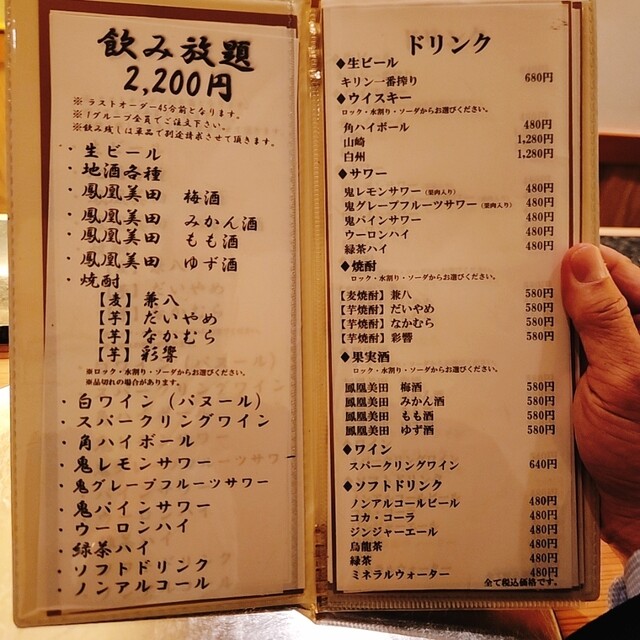 飲み放題
2,200円
※ラストオーダー45分前となります。
※1グループ全員でご注文下さい。
※飲み残しは単品で別途請求させて頂きます。
・生ビール
・地酒各種
・鳳凰美田 梅酒
・鳳凰美田 みかん酒
・鳳凰美田 もも酒
・鳳凰美田 ゆず酒
・焼酎
【麦】兼八
【芋】だいやめ
【芋】なかむら
【芋】彩響
※ロック・水割り・ソーダからお選びください。
※品切れの場合があります。
・白ワイン(パヌール)
・スパークリングワイン
・角ハイボール
・鬼レモンサワー
・鬼グレープフルーツサワー
・鬼パインサワー
・ウーロンハイ
・緑茶ハイ
・ソフトドリンク
・ノンアルコール
ドリンク
◆生ビール
キリン一番搾り 680円
◆ウイスキー
ロック・水割り・ソーダからお選びください。
角ハイボール 480円
山崎 1,280円
白州 1,280円
◆サワー
鬼レモンサワー(果肉入り) 480円
鬼グレープフルーツサワー(果肉入り) 480円
鬼パインサワー 480円
ウーロンハイ 480円
緑茶ハイ 480円
◆焼酎
ロック・水割り・ソーダからお選びください。
【麦焼酎】兼八 580円
【芋焼酎】だいやめ 580円
【芋焼酎】なかむら 580円
【芋焼酎】彩響 580円
◆果実酒
ロック・水割り・ソーダからお選びください。
鳳凰美田 梅酒 580円
鳳凰美田 みかん酒 580円
鳳凰美田 もも酒 580円
鳳凰美田 ゆず酒 580円
◆ワイン
スパークリングワイン 640円
◆ソフトドリンク
ノンアルコールビール 480円
コカ・コーラ 480円
ジンジャーエール 480円
烏龍茶 480円
緑茶 480円
ミネラルウォーター 480円
全て税込価格です。